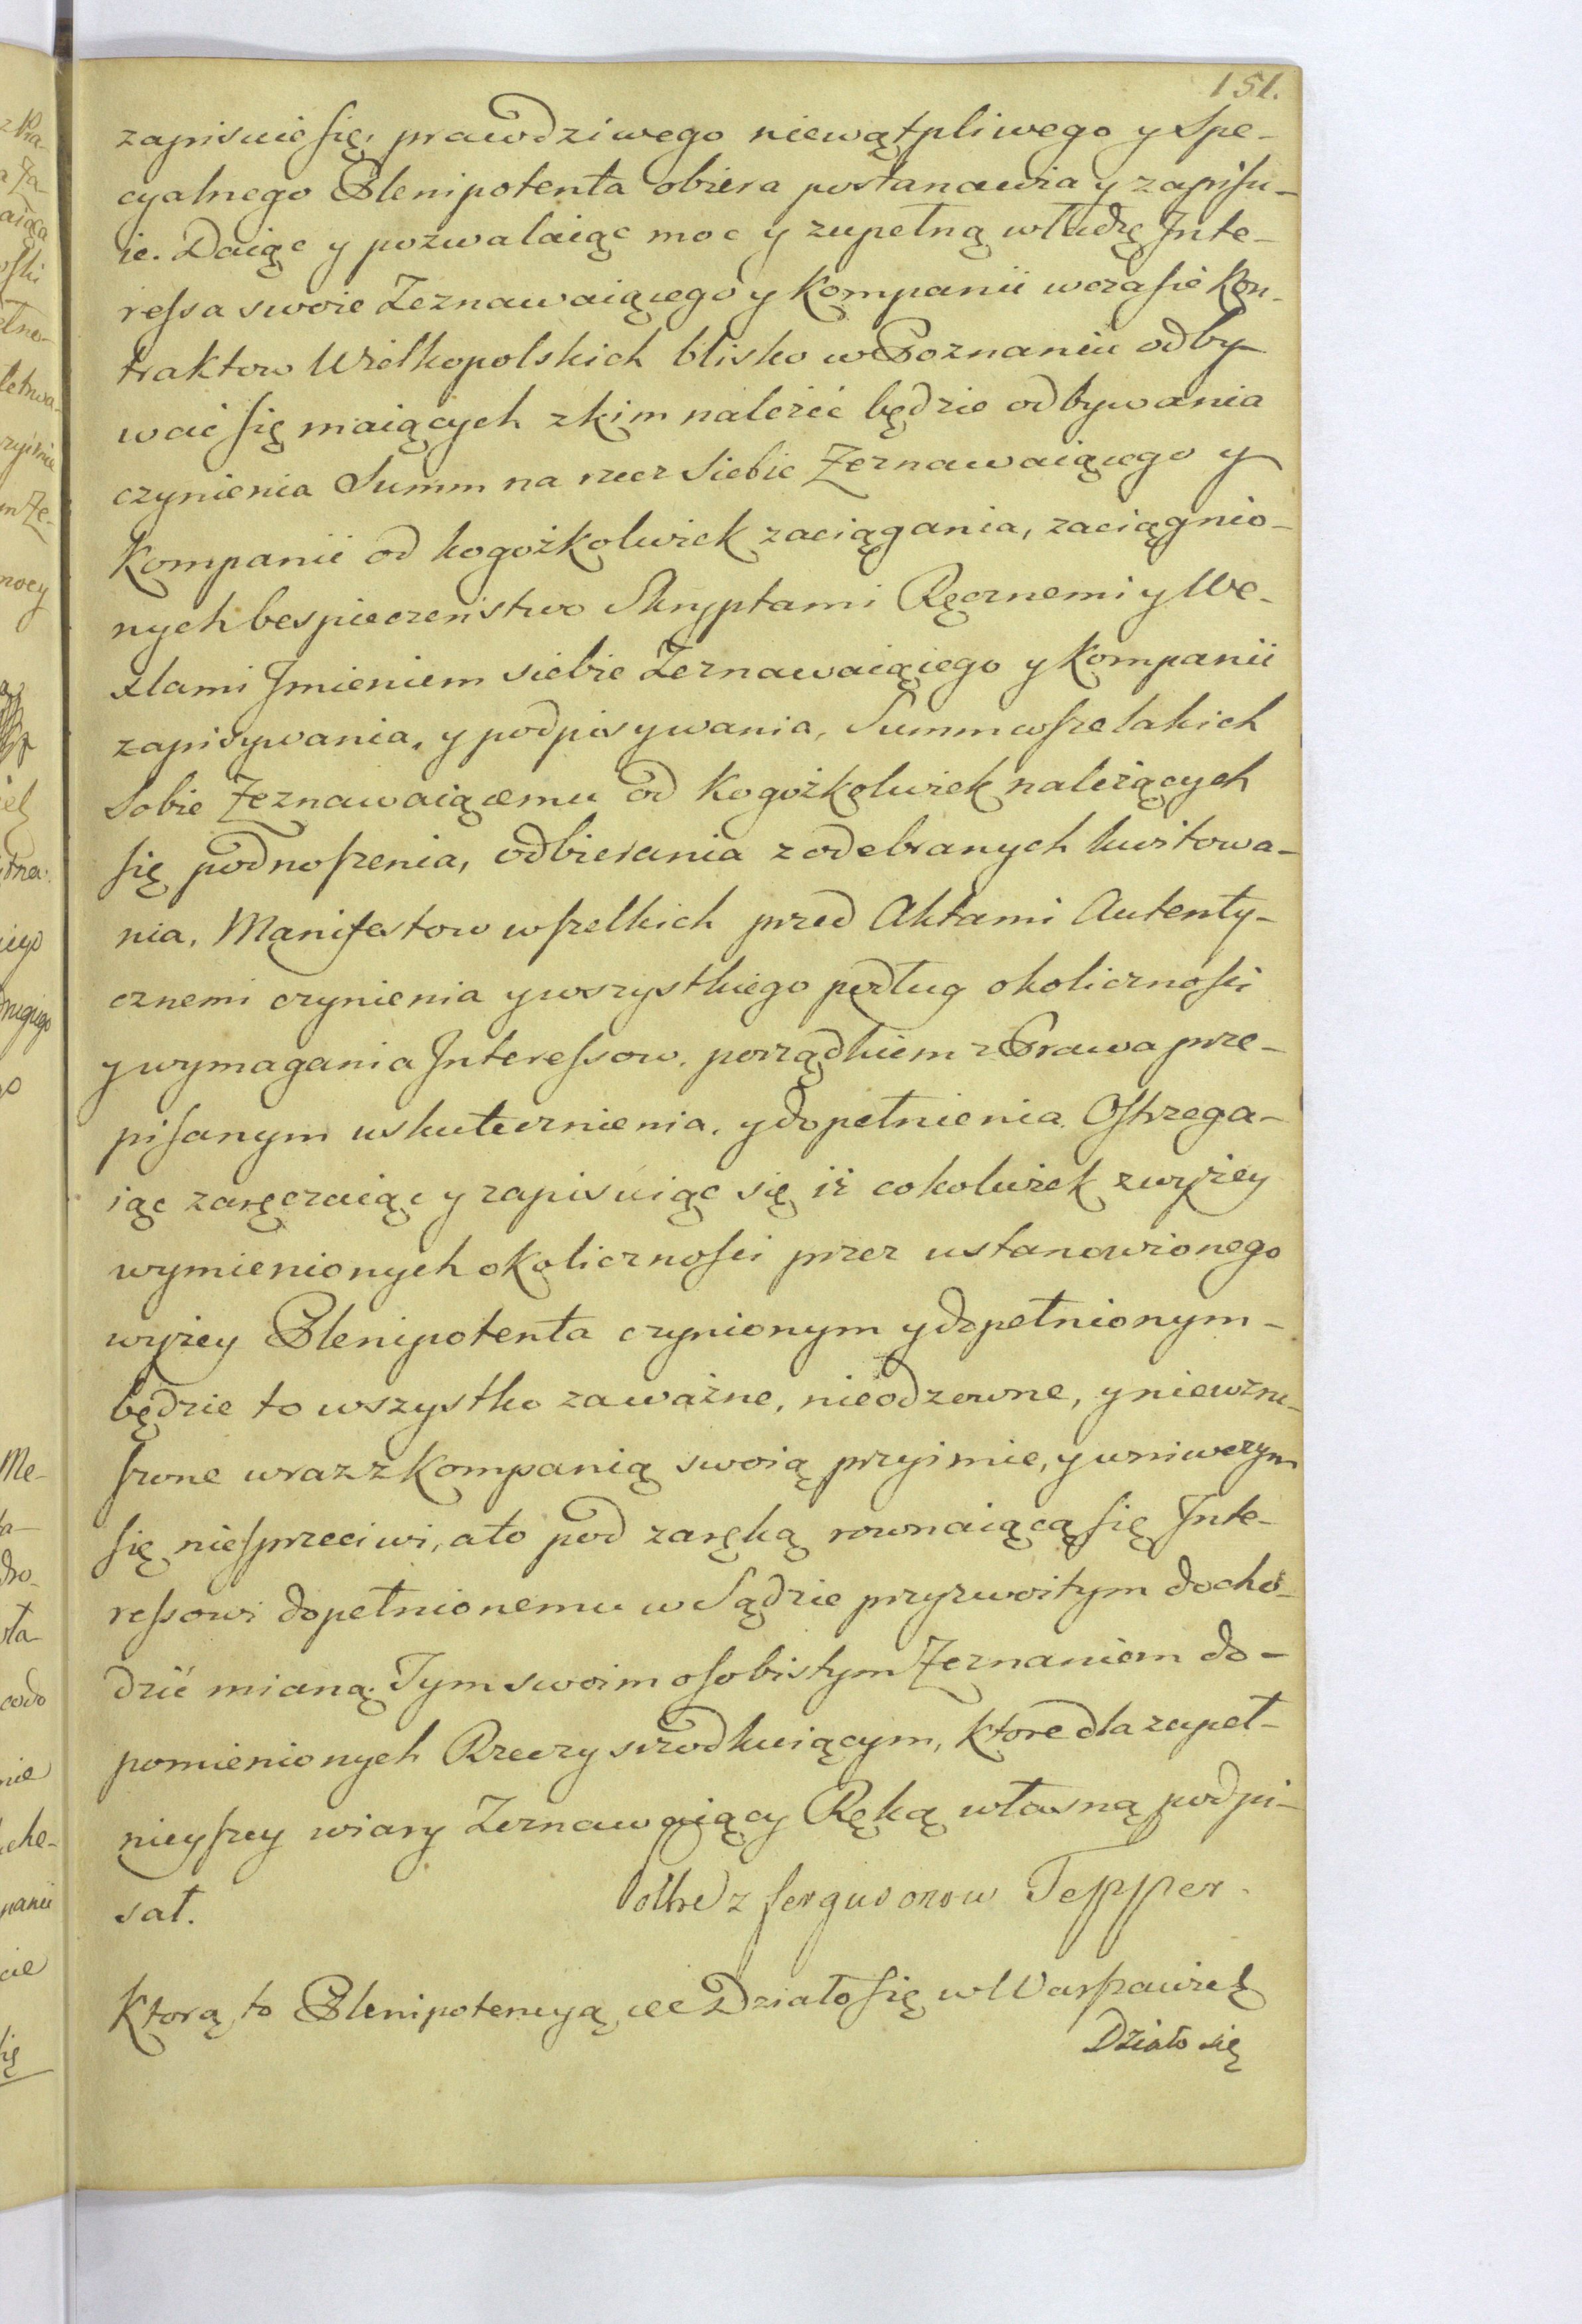 151.
zapisuie się, prawdziwego niewątpliwego y Spe-
cyalnego Plenipotenta obiera postanawia y zapisu-
ie. Daiąc y pozwalaiąc moc y zupełną władzę Inte-
ressa swoie Zeznawaiącego y Kompanii wczasie Kon-
traktow Wielkopolskich blisko w Poznaniu odby-
wać się maiących zkim należeć będzie odbywania
czynienia Summ na rzecz Siebie Zeznawaiącego y
Kompanii od kogożkolwiek zaciągania, zaciągnio-
nych bespieczeństwo Skryptami Ręcznemi y We-
xlami Imieniem siebie Zeznawaiąiego y Kompanii
zapisywania, y podpisywania, Summ wszelakich
Sobie Zeznawaiącemu od Kogożkolwiek należących
się podnoszenia, odbierania zodebranych kwitowa-
nia, Manifestow wszelkich przed Aktami Autenty-
cznemi czynienia y wszystkiego podług okoliczności
y wymagania Interessow, porządkiem z Prawa prze-
pisanym uskutecznienia, y dopełnienia. Ostrzega-
iąc zaręczaiąc y zapisuiąc się iż cokolwiek zwyżey
wymienionych okoliczności przez ustanowionego
wyżey Plenipotenta czynionym y dopełnionym-
będzie to wszystko zaważne, nieodzowne, y niewzru-
szone wraz z Kompanią swoią przyimie, y wniwczym
się niesprzeciwi, ato pod zaręką rownaiącą się Inte-
ressowi dopełnionemu w Sądzie przyzwoitym docho-
dzić mianą. Tym swoim osobistym Zeznaniem do-
pomienionych Rzeczy srzodkuiącym, ktore dla zupeł-
nieyszey wiary Zeznawaiący Ręką własną podpi-
sał.
Piotr z fergusonow Tepper.
Ktorą to Plenipotencyą etc Działo się w Warszawie
Działo się